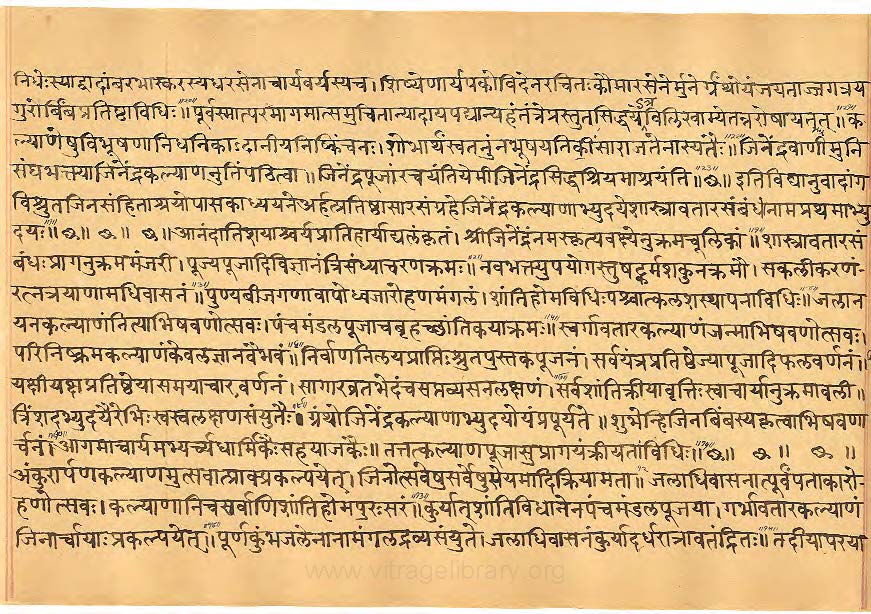 निधेःस्याद्वादांबरभास्करस्यधरसेनाचार्यवर्यस्यच। शिष्येणार्यपकोविदेनरचितःकौमारसेनेर्मुनेर्ग्रंथोयंजयनाज्जगत्रय
गुरोर्बिंबप्रतिष्ठाविधिः॥ पूर्वस्मात्परमागमात्समुचितान्यादायपद्यान्यहंतंत्रेप्रस्तुतसिद्धयेत्रविलिखाम्येतन्नदोषायनुत्॥ क
ल्याणेषुविभूषणानिधनिकादानीयनिष्किंचनः। शोभार्थंस्वतनुंनभूषयतिकींसाराजतेनास्यतैः॥ जिनेंद्रवाणीमुनि
संघभक्तयाजिनेंद्रकल्याणनुतिंपठित्वा॥ जिनेंद्रपूजांरचयंतियेमीजिनेंद्रसिद्धश्रियमाश्रयंति॥ इतिविद्यानुवादांग
विश्रुतजिनसंहिताश्रयोपासकाध्ययनेअर्हत्प्रतिष्ठासारसंग्रहेजिनेंद्रकल्याणाभ्युदयेशास्त्रावतारसंबंधेनामप्रथमाभ्यु
दयः॥ आनंदातिशयाश्चर्यप्रातिहार्याद्यलंकृतं। श्रीजिनेंद्रंनमस्कृत्यवक्ष्येनुक्रमचूलिकां॥ शास्त्रावतारसं
बंधःप्रागनुक्रममंजरी। पूज्यपूजादिविज्ञानंत्रिसंध्याचरणक्रमः॥ नवभक्तयुपयोगस्तुषट्कर्मशकुनक्रमौ। सकलीकरणं-
रत्नत्रयाणामधिवासनं॥ पुण्यबीजगणावापोध्वजारोहणमंगलं। शांतिहोमविधिःपश्चात्कलशस्थापनाविधिः॥ जलान
यनकल्याणंनित्याभिषवणोत्सवः। पंचमंडलपूजाचबृहच्छांतिकयाक्रमः॥ स्वर्गावतारकल्याणंजन्माभिषवणोत्सवः
परिनिष्क्रमकल्याणंकेवलज्ञानवैभवं॥ निर्वाणनिलयप्राप्तिःश्रुतपुस्तकपूजनं। सर्वयंत्रप्रतिष्ठेज्यापूजादिफलवर्णनं॥
यक्षीयक्षप्रतिष्ठेयासमयाचारवर्णनं। सागारव्रतभेदंचसप्तव्यसनलक्षणं॥ सर्वशांतिक्रीयावृत्तिःस्वाचार्यानुक्रमावली॥
त्रिंशदभ्युदयैरेभिःस्वस्वलक्षणसंयुतैः। ग्रंथोजिनेंद्रकल्याणाभ्युदयोयंप्रपूर्यते॥ शुभेन्हिजिनबिंबस्यकृत्वाभिषवणा
र्चनं। आगमाचार्यमभ्यर्च्यधार्मिकैःसहयाजकैः॥ तत्तत्कल्याणपूजासुप्रागयंक्रीयतांविधिः॥
अंकुरार्पणकल्याणमुत्सवात्प्राक्प्रकल्पयेत्। जिनोत्सवेषुसर्वेषुसेयमादिक्रियामता॥ जलाधिवासनात्पूर्वंपताकारो-
हणोत्सवः। कल्याणानिचसर्वाणिशांतिहोमपुरःसरं॥ कुर्यात्शांतिविधानेनपंचमंडलपूजया। गर्भावतारकल्याणं
जिनार्चायाःप्रकल्पयेत्॥ पूर्णकुंभजलेनानामंगलद्रव्यसंयुते। जलाधिवासनंकुर्यादर्धरात्रावतंद्रितः॥ तदीयापरया
www.vitragelibrary.org